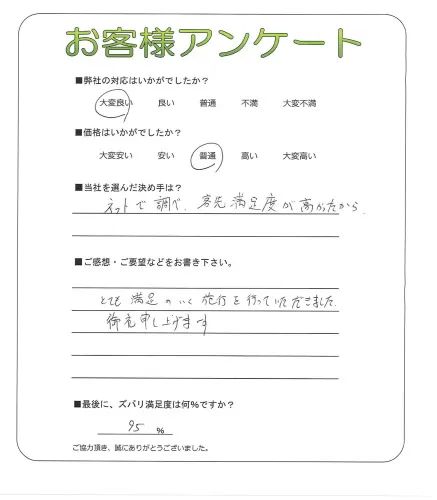 お客様アンケート
■弊社の対応はいかがでしたか?
大変良い 良い 普通 不満 大変不満
■価格はいかがでしたか?
大変安い 安い 普通 高い 大変高い
■当社を選んだ決め手は?
ネットで調べ、客先満足度が高かったから。
■ご感想・ご要望などをお書き下さい。
とても満足のいく施行を行っていただきました。
御礼申し上げます
■最後に、ズバリ満足度は何%ですか?
95 %
ご協力頂き、誠にありがとうございました。